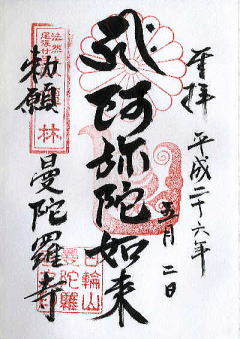 奉拝
平成二十六年
五月二日
阿弥陀如来
勅願
曼陀羅寺
林
日輪山
曼陀羅寺